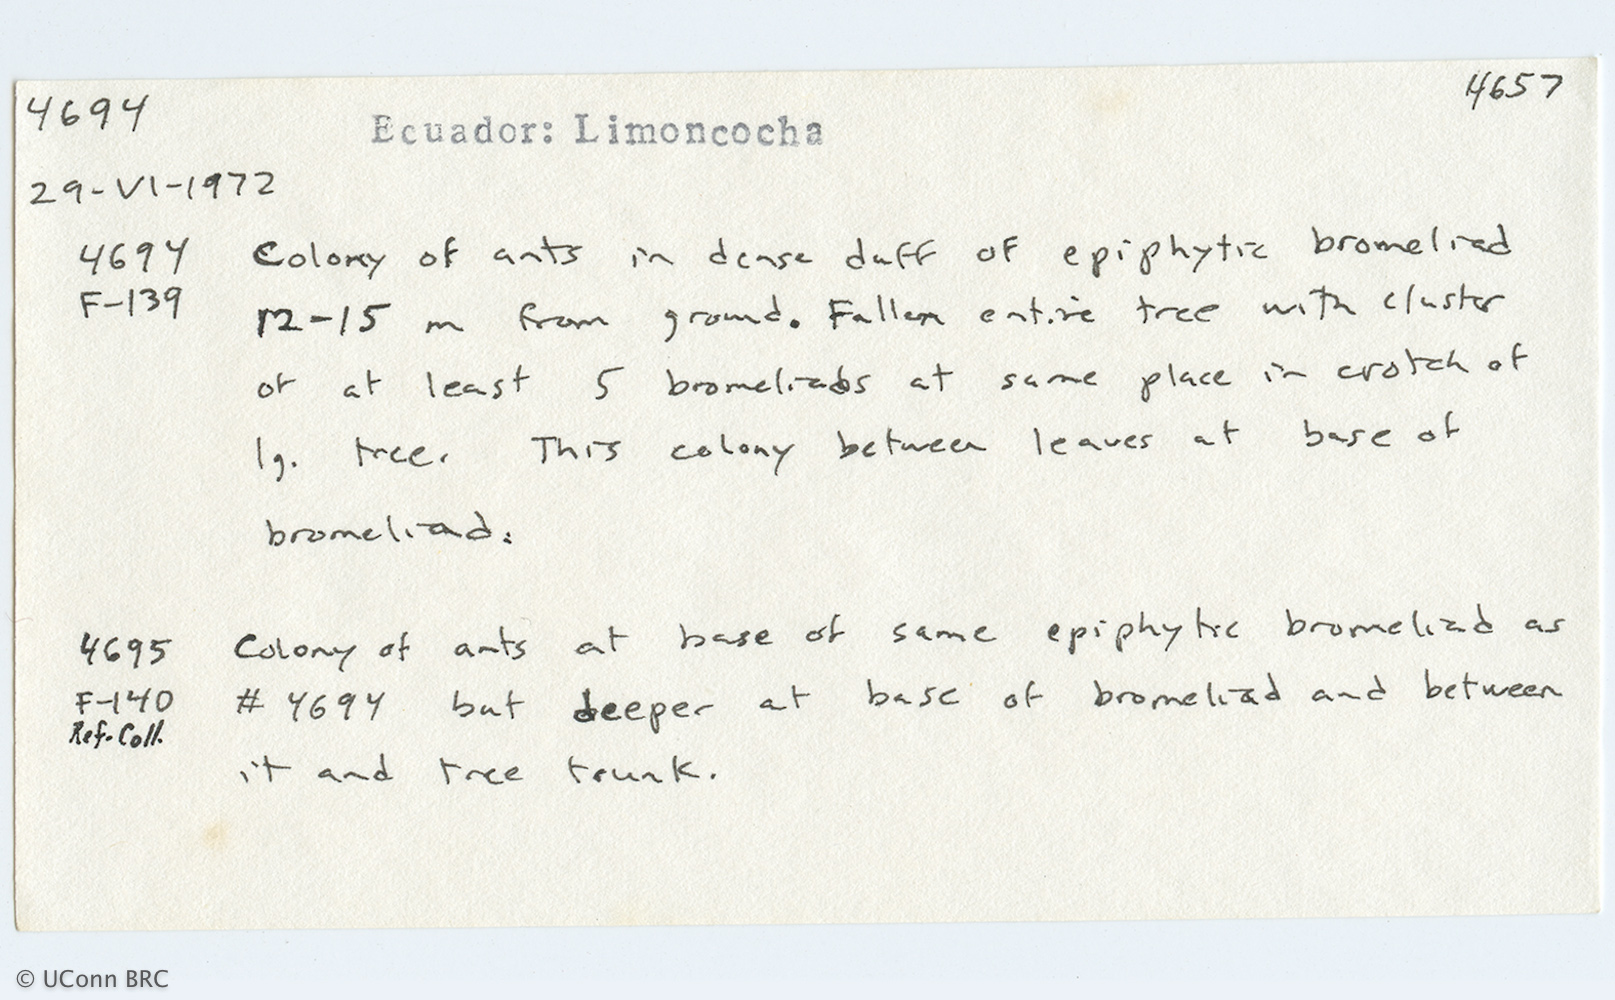 4694 4657
Ecuador: Limoncocha
29-VI-1972
4694 Colony of ants in dense duff of epiphytic bromeliad
F-139 12-15 m from ground. Fallen entire tree with cluster
of at least 5 bromeliads at same place in crotch of
lg. tree. This colony between leaves at base of
bromeliad.
4695 Colony of ants at base of same epiphytic bromeliad as
F-140 # 4694 but deeper at base of bromeliad and between
Ref. Coll.
it and tree trunk.
© UConn BRC